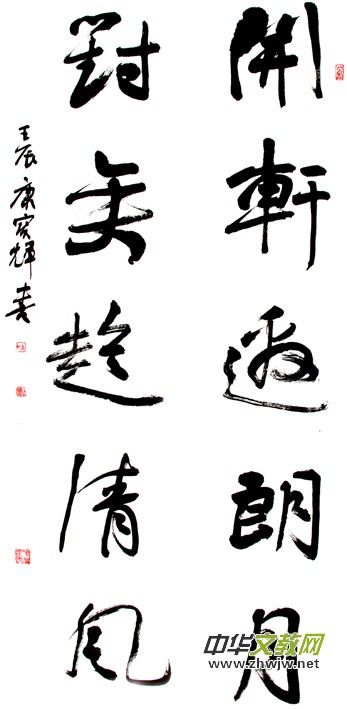 開軒邀朗月
對奕趁清風
壬辰 康 輝 書
中华文教网
www.zhwjw.net